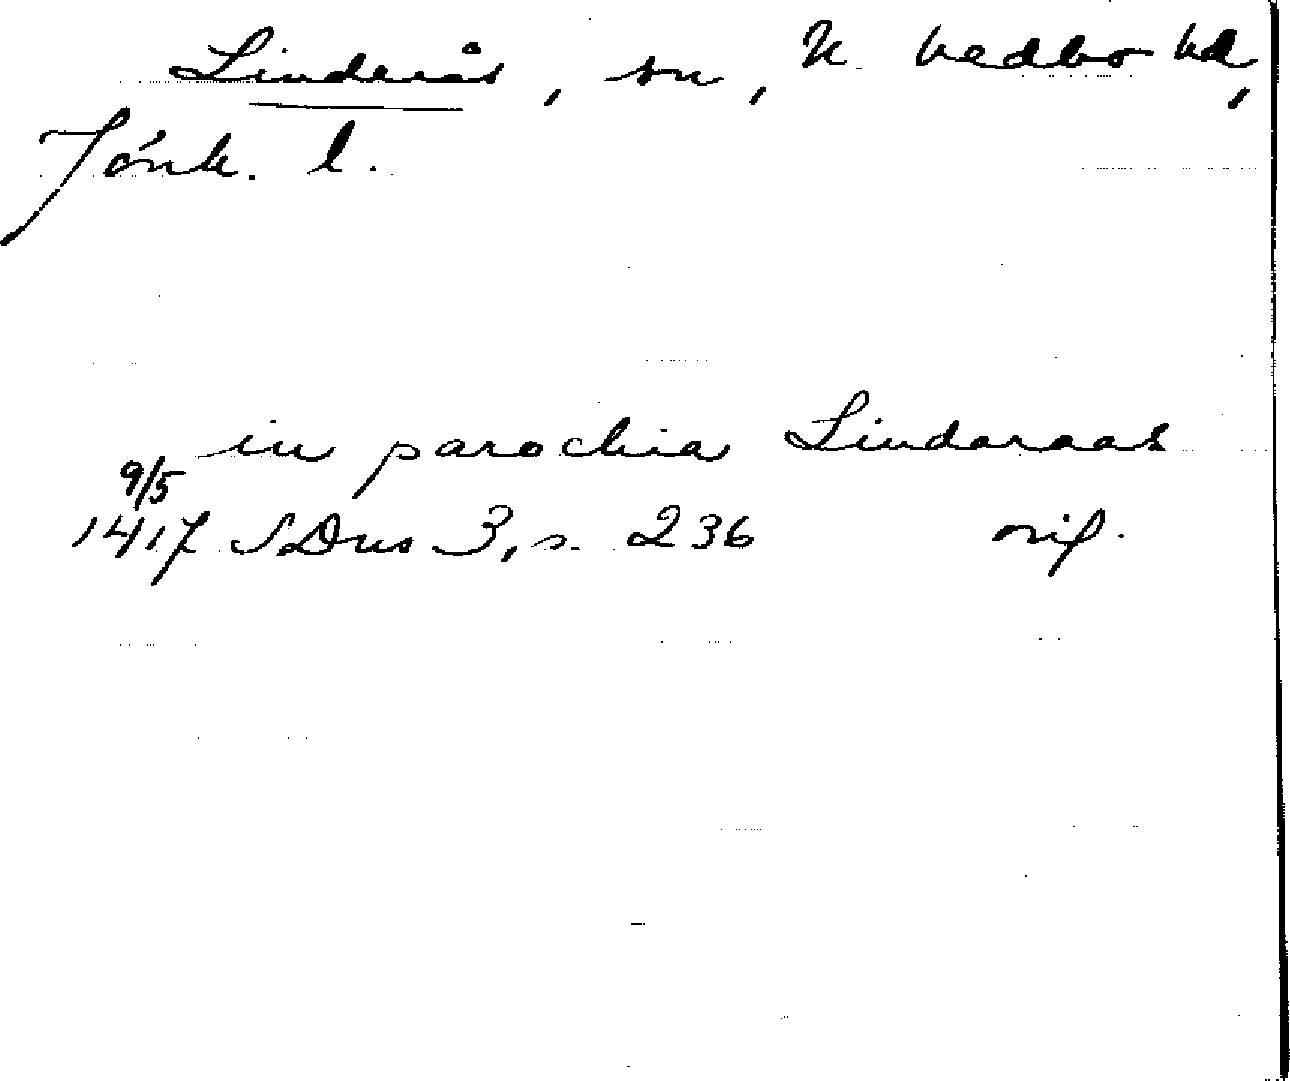 Linderås, sn, N. Vedbo hd,
Jönk. l.
in parochia Lindaraas
9/5
1417 SDns 3, s. 236 orig.